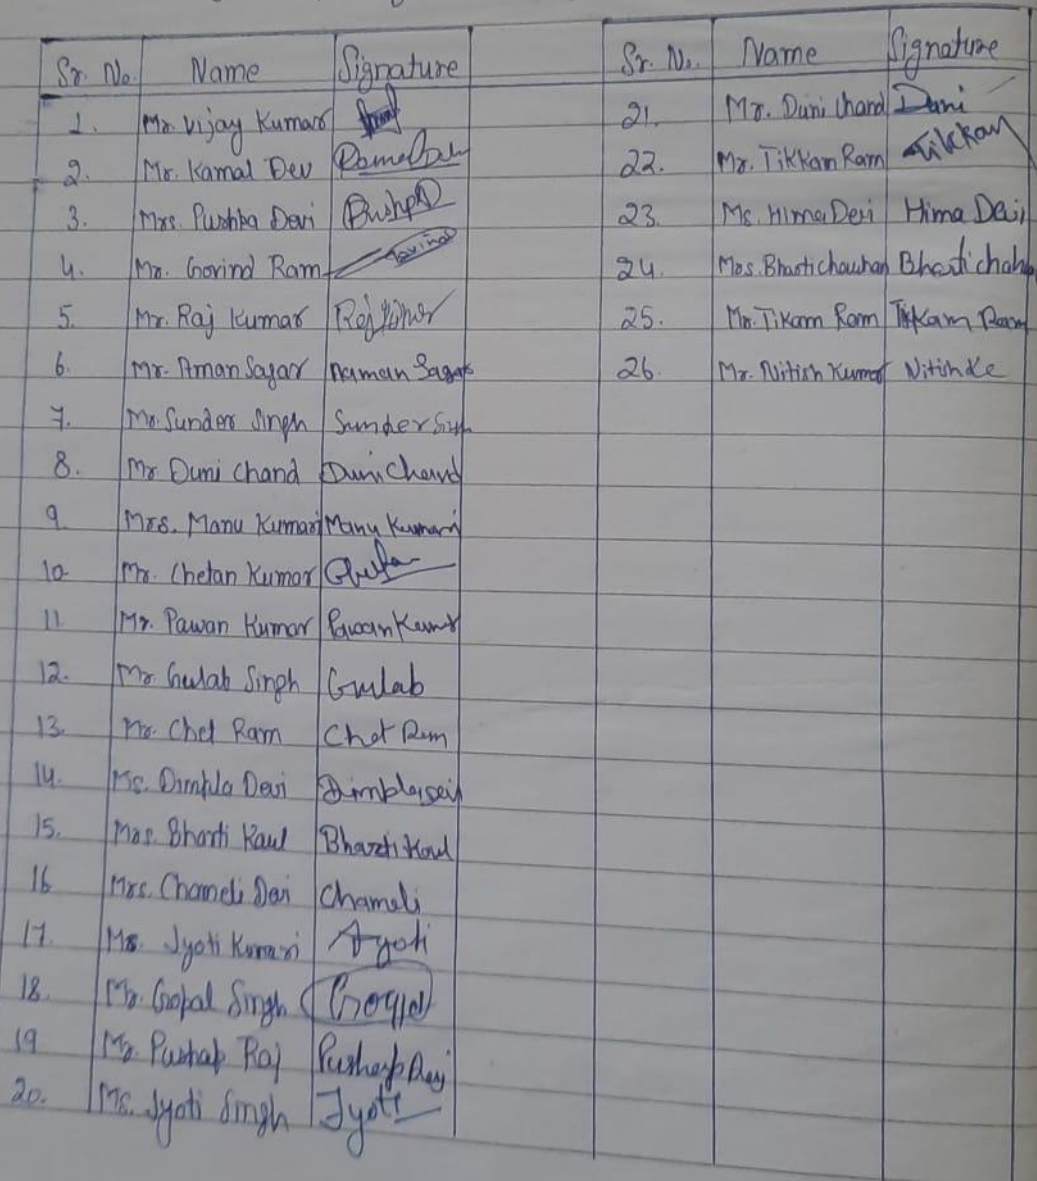 Sr. No. Name Signature
1. Mr. Vijay Kumar
2. Mr. Kamal Dev
3. Mrs. Pushpa Devi Pushpa
4. Mr. Govind Ram Govind
5. Mr. Raj Kumar Raj Kumar
6. Mr. Aman Sagar Naman Sagar
7. Mr. Sunder Singh Sunder Singh
8. Mr Duni Chand Duni Chand
9 Mrs. Manu Kumari Manu Kumari
10 Mr. Chetan Kumar
11 Mr. Pawan Kumar Pawan Kumar
12. Mr Gulab Singh Gulab
13. Mr. Chet Ram Chet Ram
14. Ms. Dimpla Devi Dimpla devi
15. Mrs. Bharti Kaul Bharti Koul
16 Mrs. Chameli Devi Chameli
17. Ms. Jyoti Kumari Jyoti
18. Mr. Gopal Singh Gopal
19 Mr. Pushap Raj Pushap Raj
20. Ms. Jyoti Singh Jyoti
Sr. No. Name Signature
21. Mr. Duni Chand Duni
22. Mr. Tikkam Ram Tikkam
23. Ms. Hima Devi Hima Devi
24. Mrs. Bharti chauhan Bharti chahn
25. Mr. Tikam Ram Tikkam Ram
26. Mr. Nitish Kumar Nitish Ke